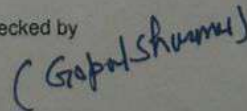 ecked by
(Gopal Sharma)